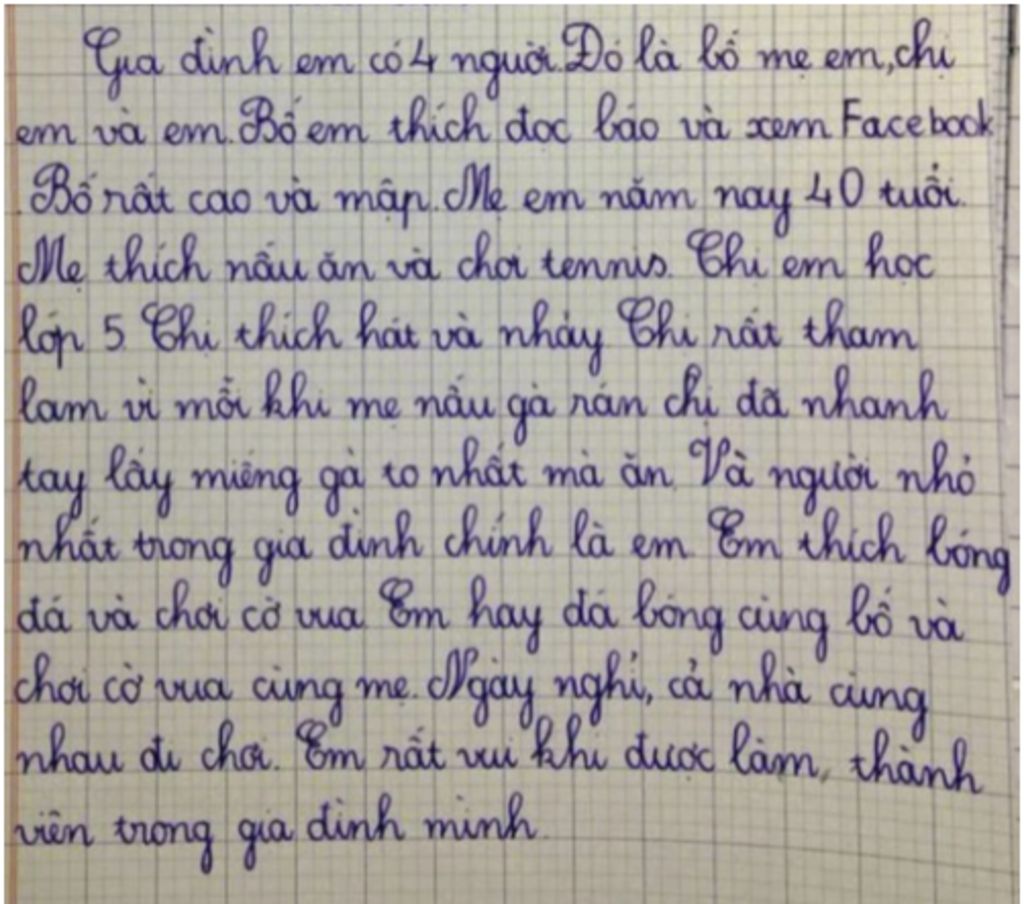 Gia đình em có 4 người. Đó là bố mẹ em, chị
em và em. Bố em thích đọc báo và xem Facebook
. Bố rất cao và mập. Mẹ em năm nay 40 tuổi.
Mẹ thích nấu ăn và chơi tennis. Chị em học
lớp 5 Chị thích hát và nhảy Chị rất tham
lam vì mỗi khi mẹ nấu gà rán chị đã nhanh
tay lấy miếng gà to nhất mà ăn. Và người nhỏ
nhất trong gia đình chính là em. Em thích bóng
đá và chơi cờ vua Em hay đá bóng cùng bố và
chơi cờ vua cùng mẹ. Ngày nghỉ, cả nhà cùng
nhau đi chơi. Em rất vui khi được làm, thành
viên trong gia đình mình.